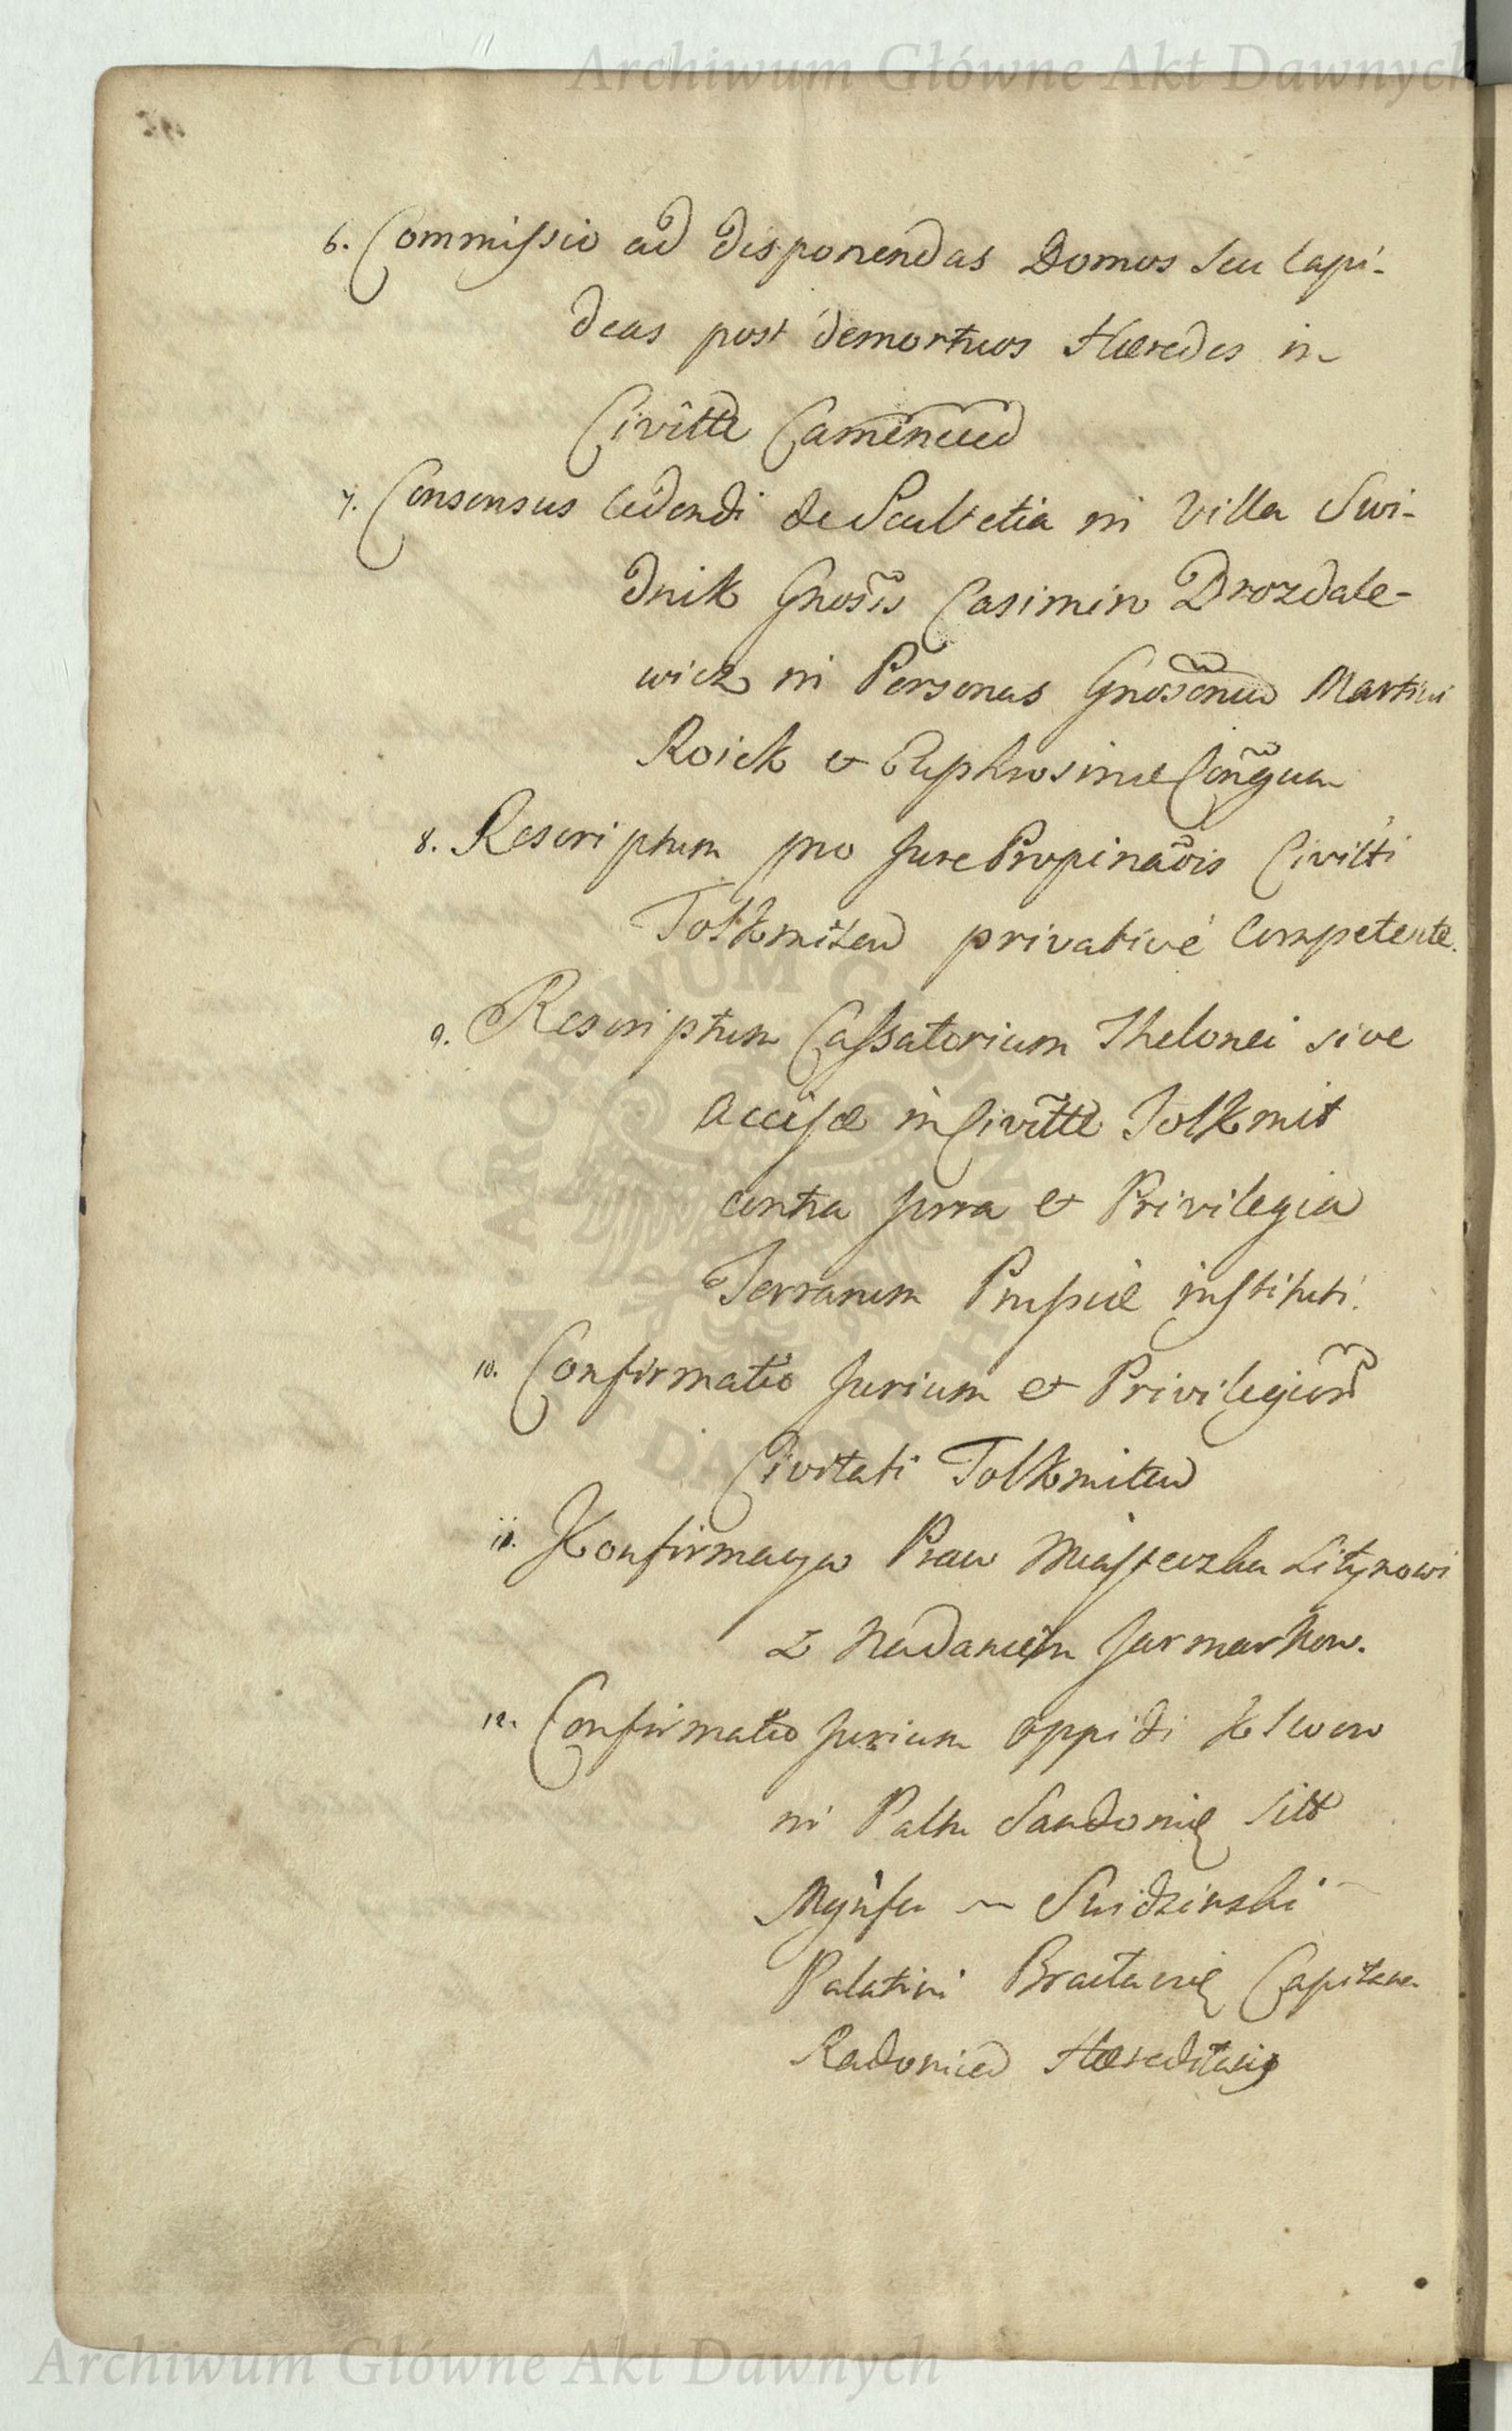 Archiwum Główne Akt Dawnych
6. Commissio ad disponendas Domos seu lapi-
deas post demortuos Hæredes in
Civitte Camenecen
7. Consensus cedendi de Scultetia in Villa Swi-
dnik Gnosis Casimiro Drozdale-
wicz in Personas Gnosorum Martini
Roick et Euphrosinæ Congum
8. Rescriptum pro Jure Propinaois Civitti
Tolkmiten privativé competente.
9. Rescriptum Cassatorium Thelonei sive
Accisæ in Civitte Tolkmit
contra Jura et Privilegia
Terrarum Prussiæ instituti.
10. Confirmatio Jurium et Privilegiorum
Civitati Tolkmiten
11. Konfirmacya Praw Miasteczku Litynowi
z Nadaniem Jarmarkow.
12. Confirmatio Jurium oppidi Klwow
in Palttu Sandomię sitt
Mgnfci Swidzinski
Palatini Braclavię Capitanei
Radomien Hæreditario
ARCHIWUM GŁÓWNE AKT DAWNYCH
Archiwum Główne Akt Dawnych